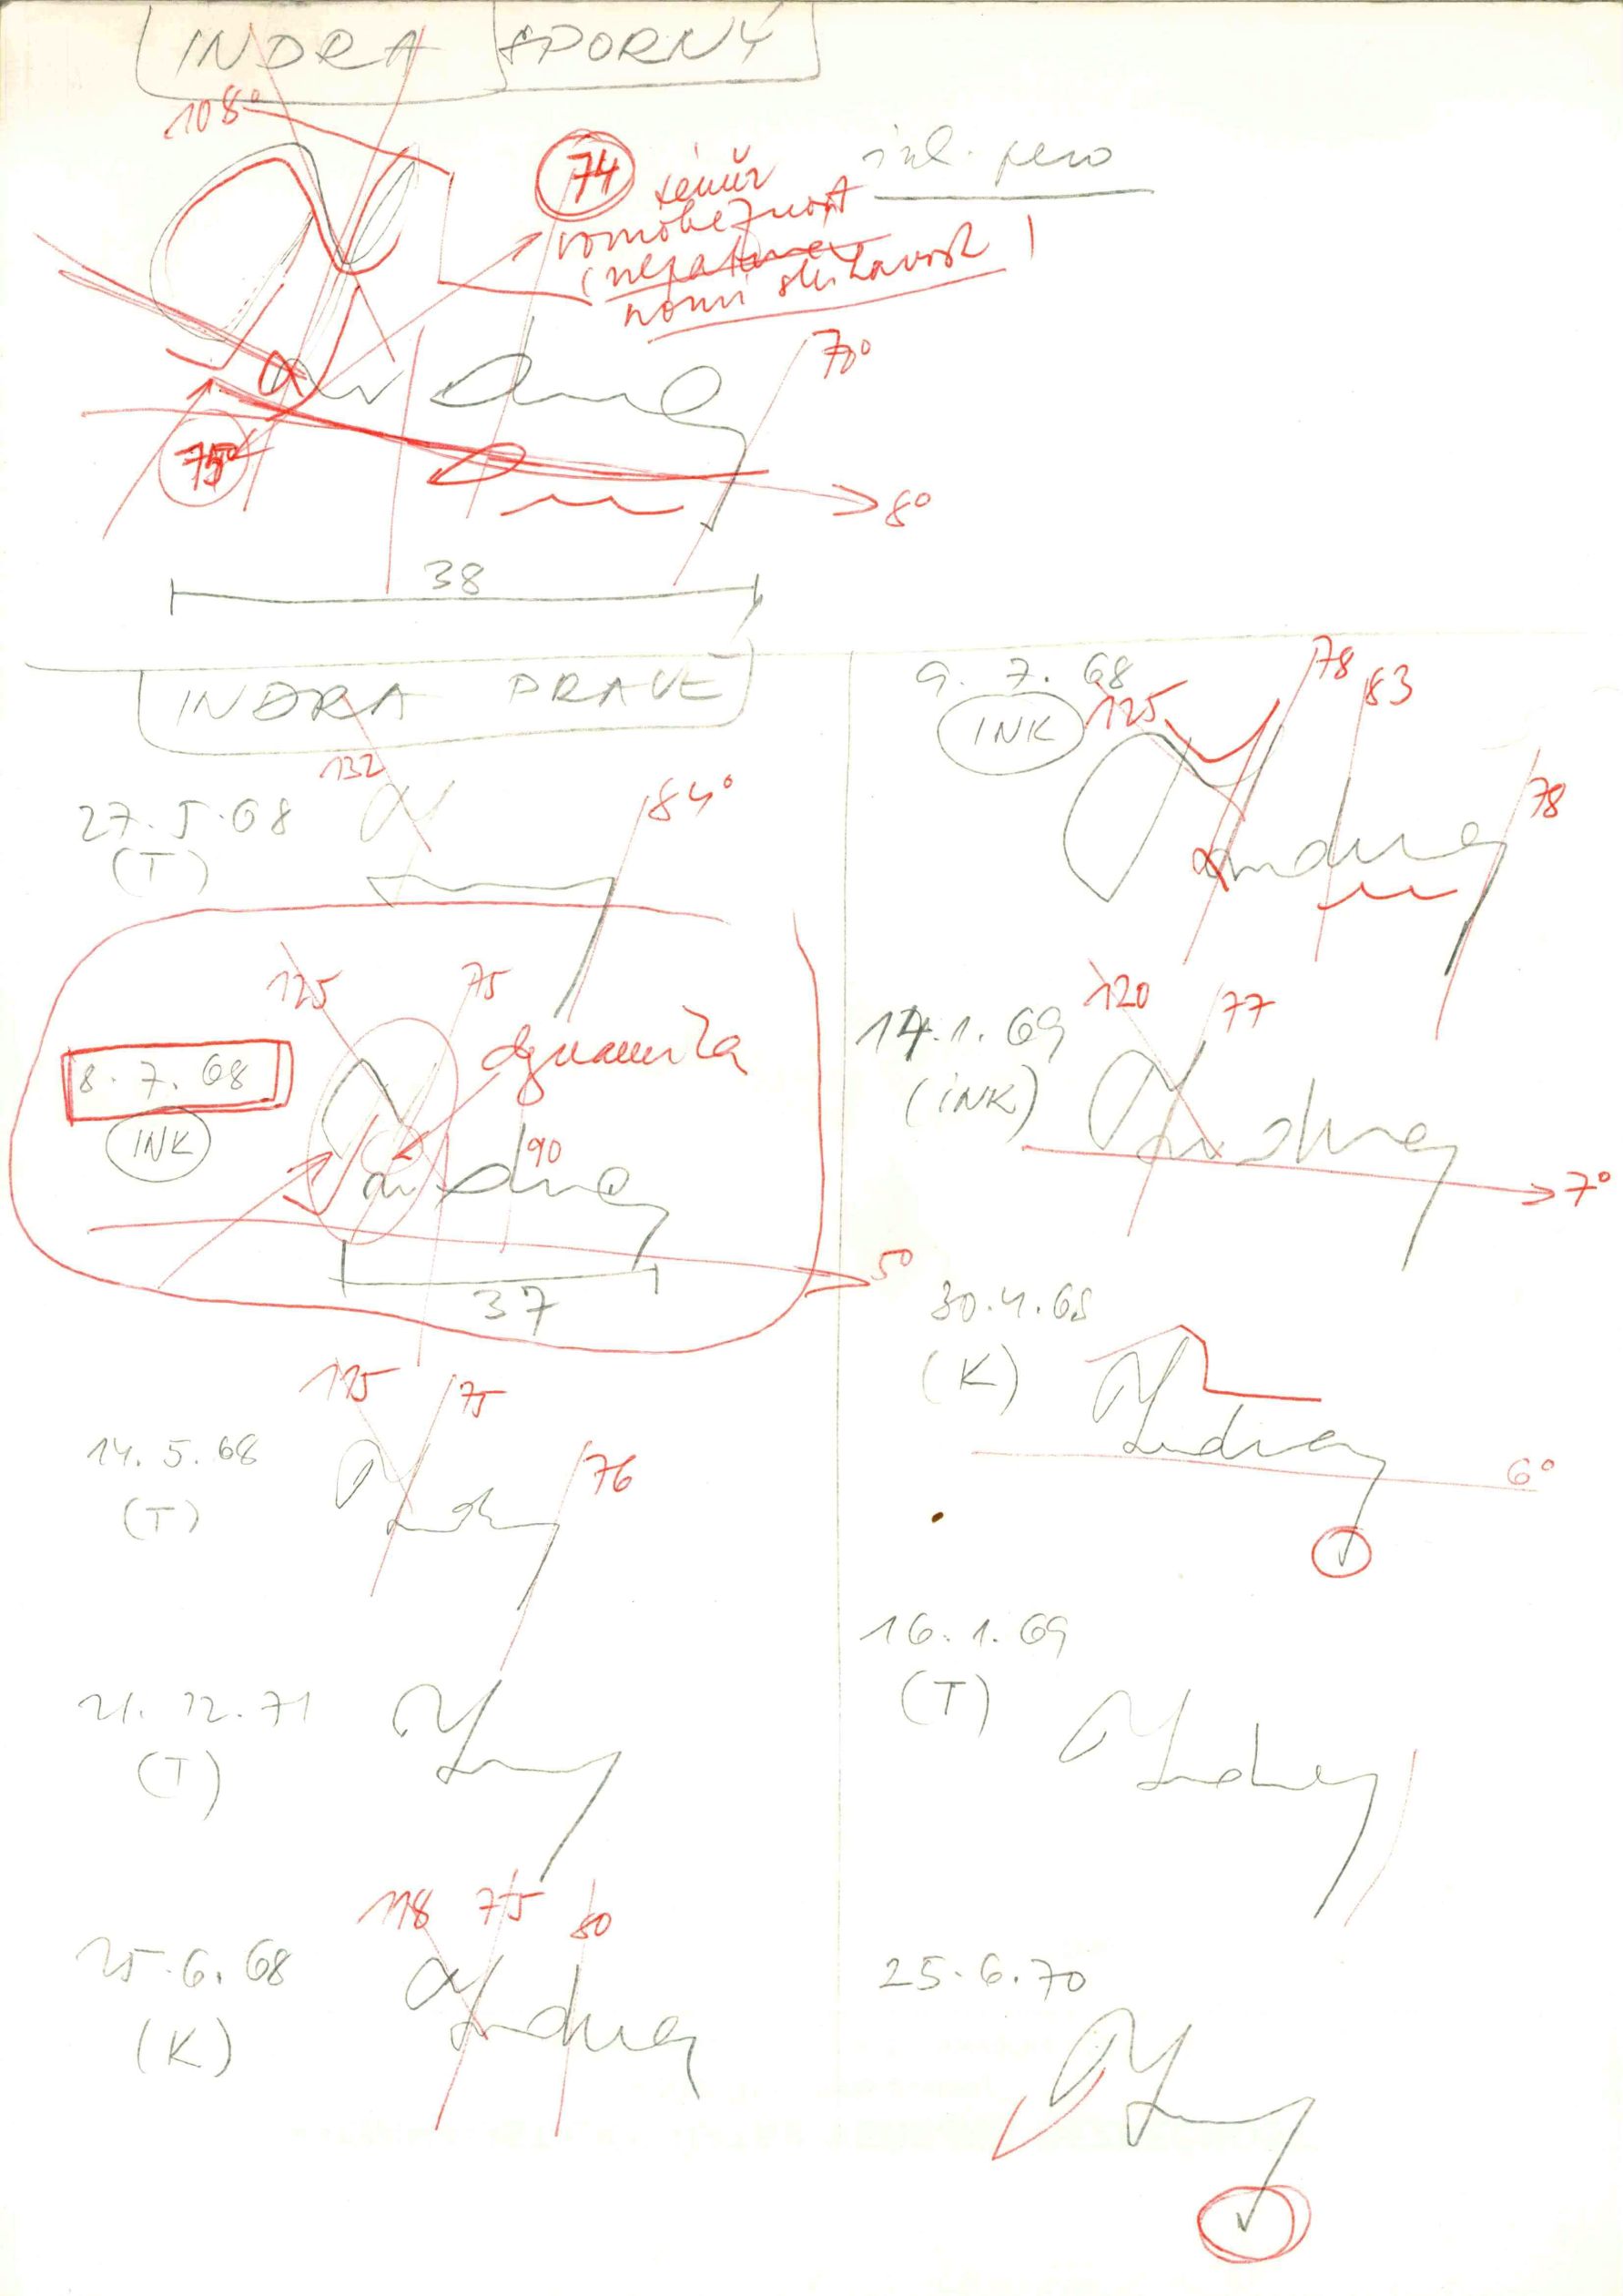 INDRA SPORNÝ
108°
74 téměř
ink. pero
rovnoběžnost
70°
75°
8°
38
INDRA PRAVÉ
132
27.5.68
84°
(T)
125
75
8.7.68
dynamika
INK
90
5°
37
115
75
14.5.68
76
(T)
21.12.71
(T)
118 75 80
25.6.68
(K)
9.7.68
78
83
INK
125
78
Indra
120
77
14.1.69
(INK)
Indra
7°
30.4.68
(K)
Indra
6°
16.1.69
(T)
Indra
25.6.70